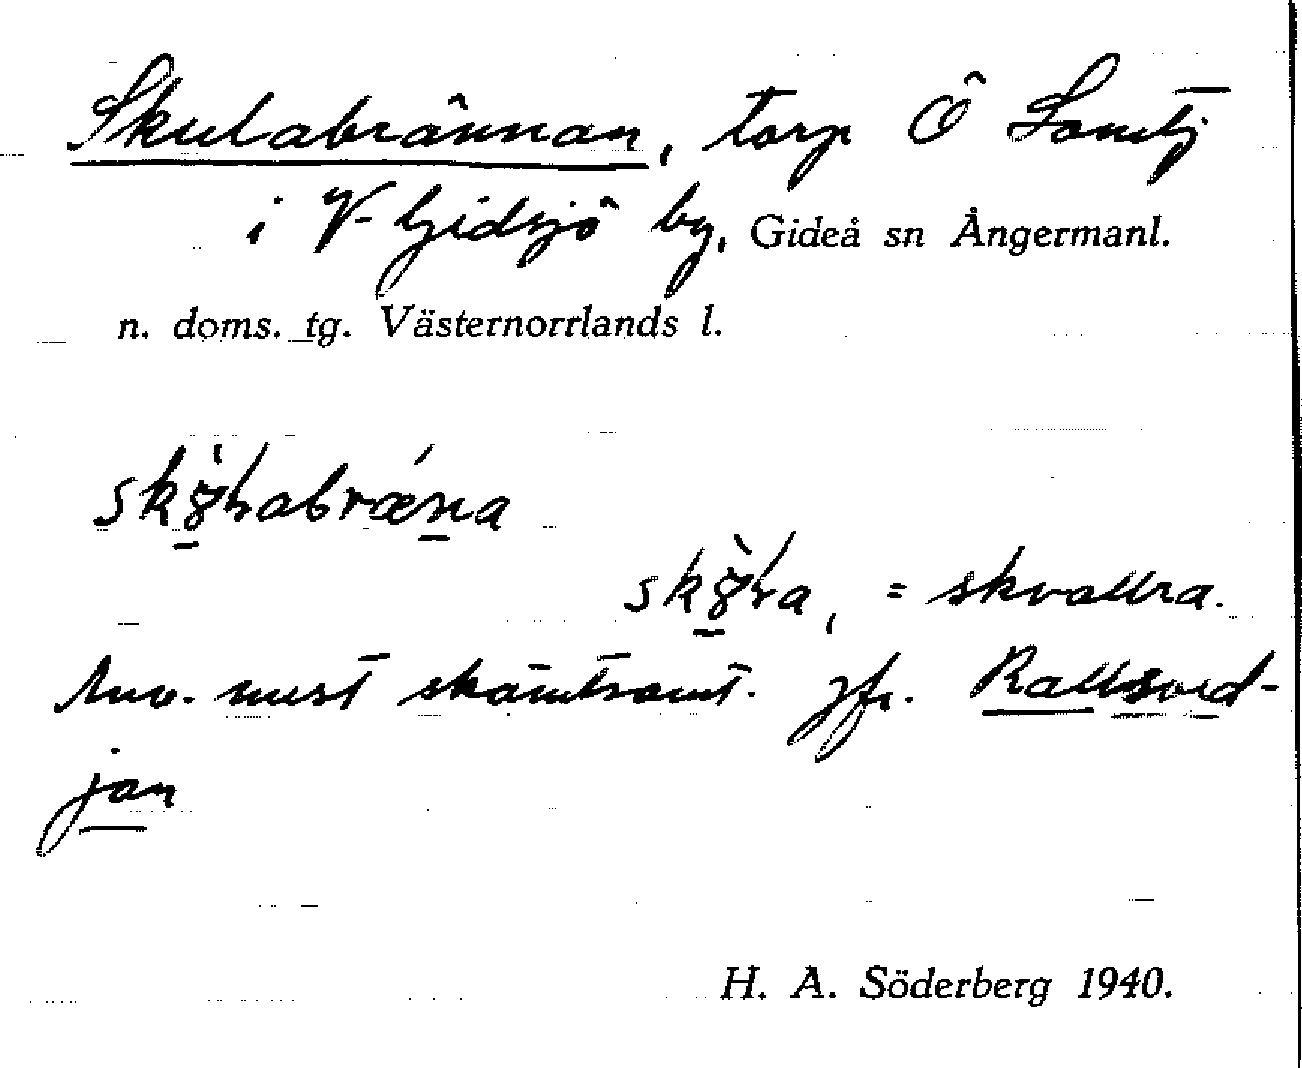 Skulabrännan, torp Ö
i V Gidsjö by, Gideå sn Ångermanl.
n. doms. tg. Västernorrlands l.
= skvallra.
Anv. mest skämtsamt. jfr. Rallsved-
jan
H. A. Söderberg 1940.